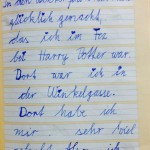 In den
glücklich gemacht,
das ich im Foe
bei Harry Potter war.
Dort war ich in
der Winkelgasse.
Dort hab ich
mir sehr viel
ich